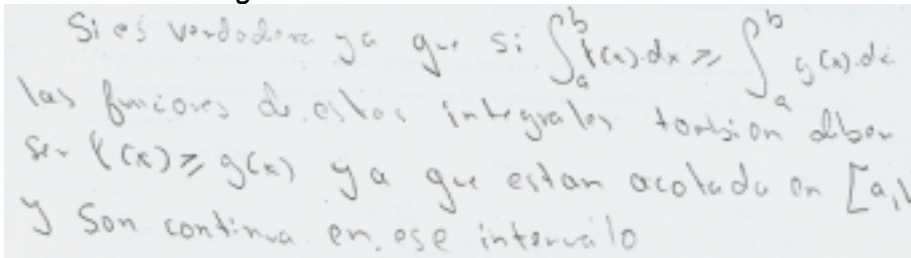 Si es verdadera ya que si ∫_a^b f(x).dx ≥ ∫_a^b g(x).dx
las funciones de estas integrales tambien deben
ser f(x) ≥ g(x) ya que estan acotada en [a,b
y son continua en ese intervalo